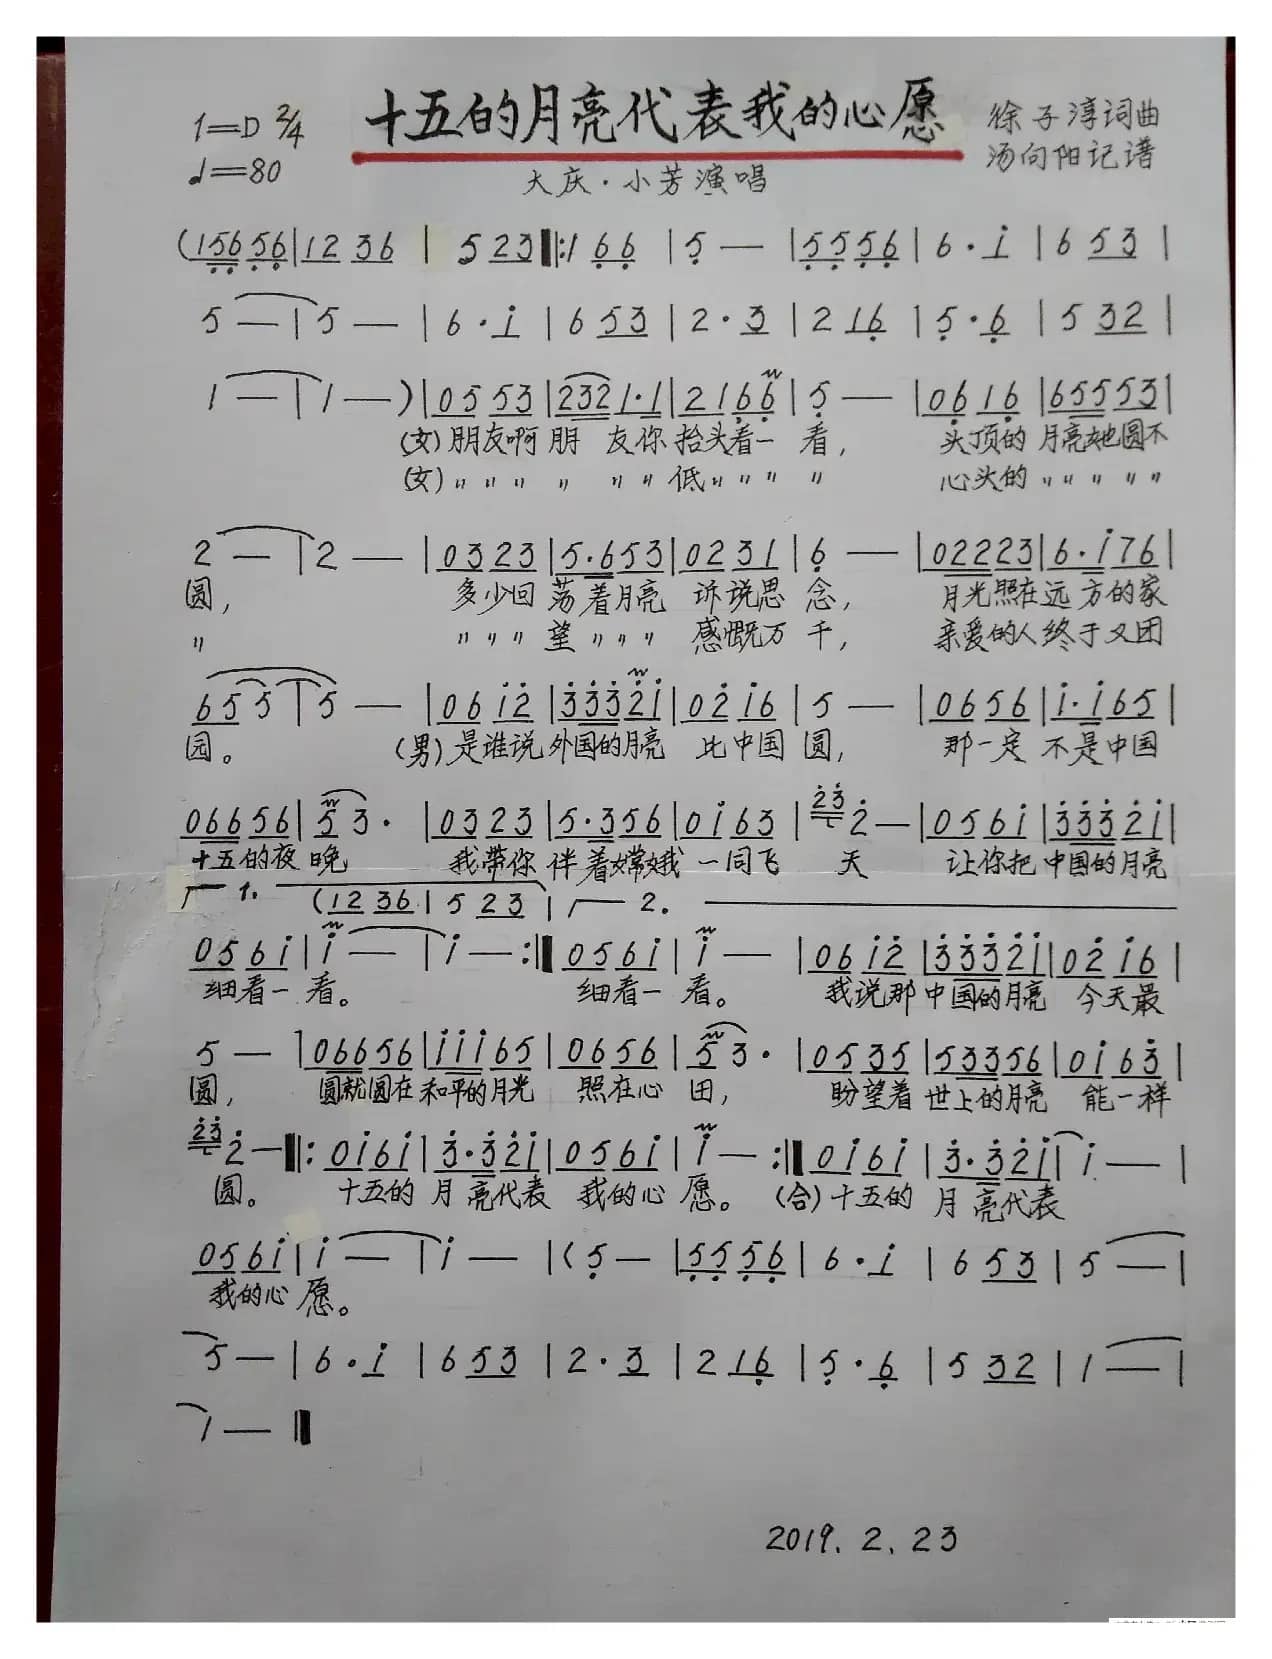 十五的月亮代表我的心愿
1=D 2/4
徐子淳词曲
♩=80
汤向阳记谱
大庆·小芳演唱
(156 56|12 36 | 5 23‖:1 66 | 5 — |55 56| 6·i | 6 53 |
5 — | 5 — | 6·i | 6 53 | 2·3 | 2 16 | 5·6 | 5 32 |
1 — | 1 — )|05 53|232 1·1|21 66| 5 — |06 16|655 53|
(女)朋友啊 朋 友你 抬头看一 看, 头顶的 月亮她圆不
(女)〃〃〃 〃 〃〃 低〃〃〃 〃 心头的 〃〃〃〃〃
2 — | 2 — |03 23|5·6 53|02 31| 6 — |022 23|6·i 76|
圆, 多少回 荡着月亮 诉说思 念, 月光照在远 方的家
〃 〃〃〃 望〃〃〃 感慨万 千, 亲爱的人终于又团
65 5 | 5 — |06 i2|333 2i|02 i6| 5 — |06 56|i·i 65|
园。 (男)是谁说 外国的月亮 比中国 圆, 那一定 不是中国
066 56|5 3·|03 23|5·3 56|0i 63| 23 2 —|05 6i|333 2i|
十五的夜 晚 我带你 伴着嫦娥 一同飞 天 让你把 中国的月亮
1. (12 36| 5 23 | 2.
05 6i|i — | i —:‖05 6i|i — |06 i2|333 2i|02 i6|
细看一 看。 细看一 看。 我说那 中国的月亮 今天最
5 — |066 56|iii 65|06 56|5 3·|05 35|533 56|0i 63|
圆, 圆就圆在 和平的月光 照在心 田, 盼望着 世上的月亮 能一样
23 2 —‖:0i 6i|3·3 2i|05 6i|i —:‖0i 6i|3·3 2i|i — |
圆。 十五的 月 亮代表 我的心 愿。 (合)十五的 月 亮代表
05 6i|i — | i — |(5 — |55 56| 6·i | 6 53 | 5 — |
我的心 愿。
5 — | 6·i | 6 53 | 2·3 | 2 16 | 5·6 | 5 32 | 1 — |
1 — ‖
2019.2.23